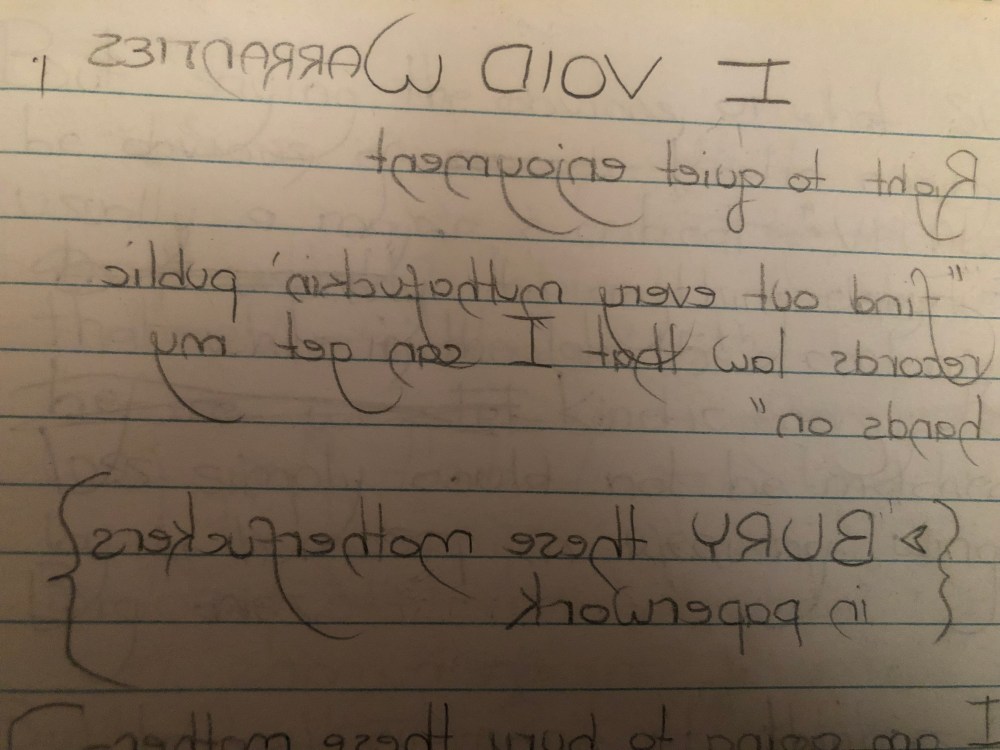 I VOID WARRANTIES
Right to quiet enjoyment
"find out every muthafuckin' public
records law that I can get my
hands on"
> "BURY these motherfuckers
in paperwork
I am going to bury these mother-